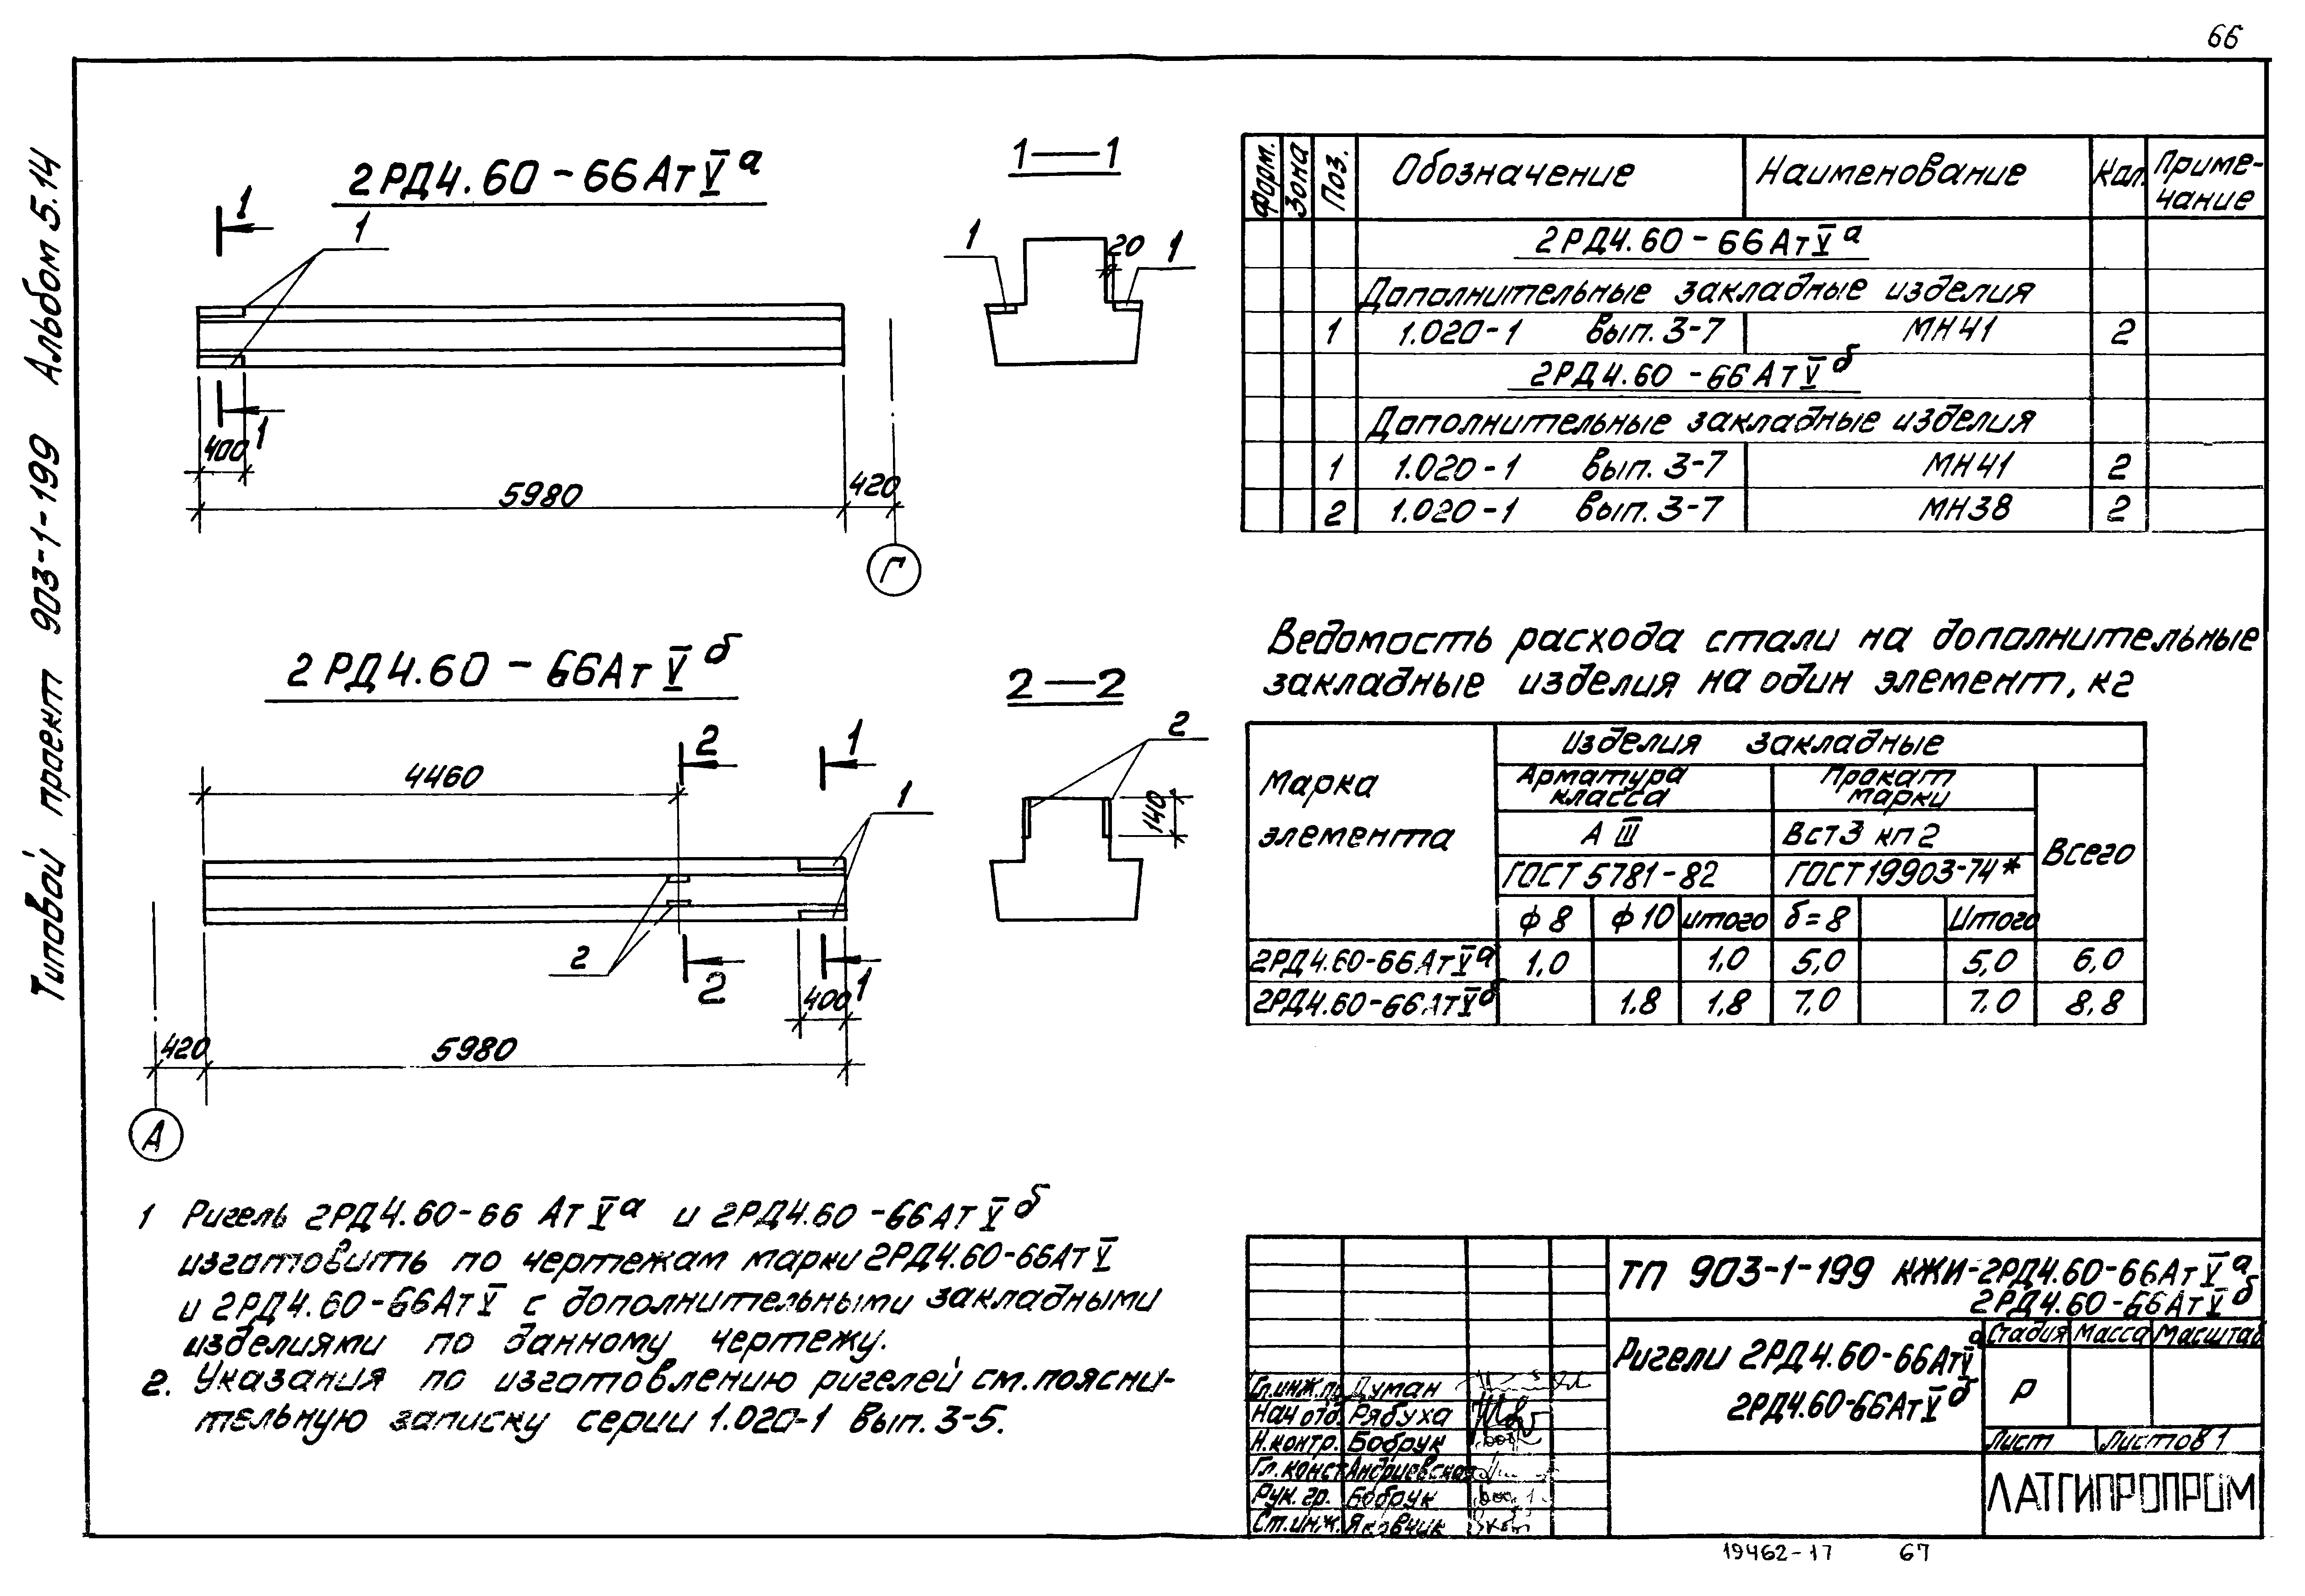 66
Типовой проект 903-1-199 Альбом 5.14
2РД4.60-66АтV а
1
1
1
400
5980
420
Г
1—1
1
20
1
2РД4.60-66АтV б
4460
2
1
1
2
2
400
1
420
5980
А
2—2
2
140
Форм.
Зона
Поз.
Обозначение
Наименование
Кол.
Приме-
чание
2РД4.60-66АтV а
Дополнительные закладные изделия
1 1.020-1 вып. 3-7 МН41 2
2РД4.60-66АтV б
Дополнительные закладные изделия
1 1.020-1 вып. 3-7 МН41 2
2 1.020-1 вып. 3-7 МН38 2
Ведомость расхода стали на дополнительные
закладные изделия на один элемент, кг
Марка
элемента
Изделия закладные
Арматура
класса
Прокат
марки
А III
Вст3 кп2
Всего
ГОСТ 5781-82
ГОСТ 19903-74*
ф8 ф10 итого δ=8 Итого
2РД4.60-66АтV а 1,0 1,0 5,0 5,0 6,0
2РД4.60-66АтV б 1.8 1,8 7,0 7.0 8,8
1 Ригель 2РД4.60-66 АтV а и 2РД4.60-66АтV б
изготовить по чертежам марки 2РД4.60-66АтV
и 2РД4.60-66АтV с дополнительными закладными
изделиями по данному чертежу.
2. Указания по изготовлению ригелей см. поясни-
тельную записку серии 1.020-1 вып. 3-5.
ТП 903-1-199 КЖИ-2РД4.60-66АтV а
2РД4.60-66АтV б
Ригели 2РД4.60-66АтV а
2РД4.60-66АтV б
Стадия Масса Масштаб
Р
Лист Листов 1
ЛАТГИПРОПРОМ
Гл.инж.пр. Думан
Нач отд. Рябуха
Н.контр. Бобрук
Гл.конст. Андриевская
Рук.гр. Бобрук
Ст.инж. Яковчик
19462-17 67